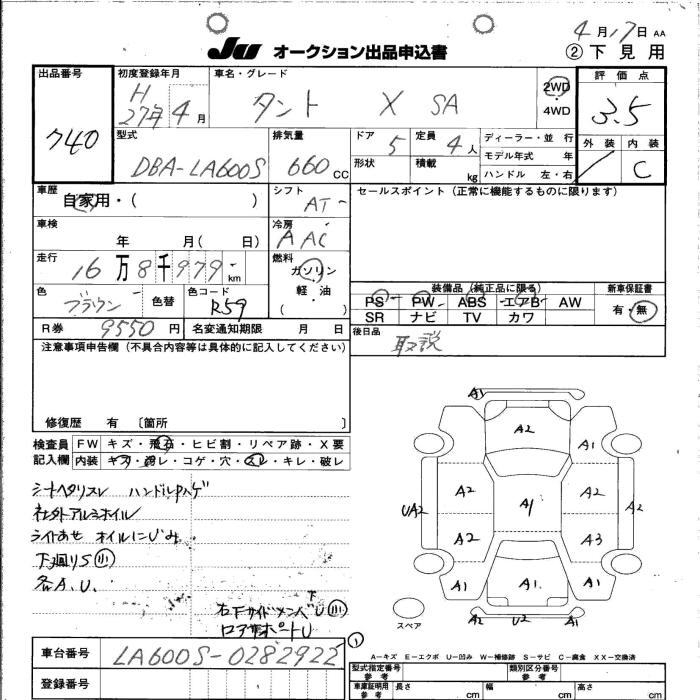 4月17日 AA
JU オークション出品申込書 ②下見用
出品番号 初度登録年月 車名・グレード 評価点
740 H27年4月 タント X SA 2WD・4WD 3.5
型式 排気量 ドア 定員 ディーラー・並行 外装 内装
DBA-LA600S 660CC 5 4人 モデル年式 年 C
形状 積載 kg ハンドル 左・右
車歴 シフト セールスポイント（正常に機能するものに限ります）
自家用・（ ） AT
車検 冷房
年 月（ 日） AAC
走行 燃料
16万8千979km ガソリン
軽・油
（ ）
色 色替 色コード 装備品（純正品に限る） 新車保証書
ブラウン R59 PS PW ABS エアB AW 有・無
SR ナビ TV カワ
R券 9550円 名変通知期限 月 日 後日品
取説
注意事項申告欄（不具合内容等は具体的に記入してください）
修復歴 有 〔箇所 〕
検査員記入欄 FW キズ・飛石・ヒビ割・リペア跡・X要
内装 キズ・汚レ・コゲ・穴・スレ・キレ・破レ
シートヘタリスレ ハンドルハゲ
社外アルミホイル
ライトあせ オイルにじみ
下廻りS小
各A.U.
右下サイドメンバU小
下
コアサポートU
A1
A2
A1 A1
A2 A1 A2
UA2 A2
A2 A3
A1 A1 A1
A2 U2 A2
スペア
①
A－キズ E－エクボ U－凹み W－補修跡 S－サビ C－腐食 XX－交換済
車台番号 LA600S-0282922
登録番号
型式指定番号 参考 類別区分番号 参考
車庫証明用 参考 長さ cm 幅 cm 高さ cm